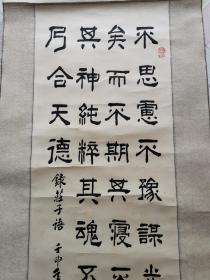 不思慮不豫謀光
矣而不期其寢不
其神純粹其魂不
乃合天德
錄莊子語 壬申